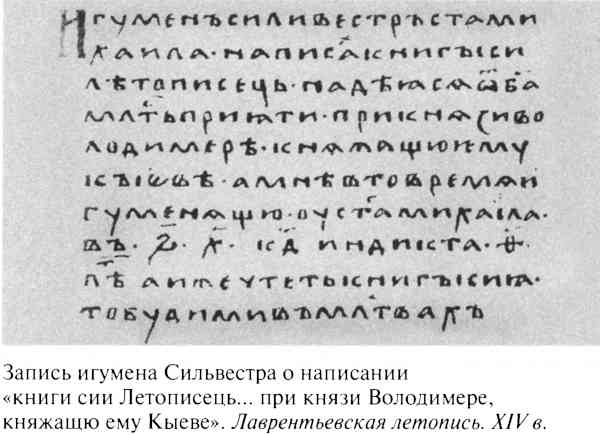 Игуменъсиливестръстами
хаила·написаⷯкнигꙑси
лѣтописець·надѣꙗсѧѿб҃а
млⷭ҇тьприꙗти·прикнѧзиво
лодимерѣ·кнѧжащюѥму
кꙑѥвѣ·амнѣвтовремѧи
гуменѧщю·оустⷢ҇амихаила·
въ·҂ѕ҃·х҃·к҃д индикта·ѳ҃·
лѣⷮ аижечтетькнигꙑсиꙗ·
тобудимивъмл҃твахъ
Запись игумена Сильвестра о написании
«книги сии Летописець... при князи Володимере,
княжащю ему Кыеве». Лаврентьевская летопись. XIV в.